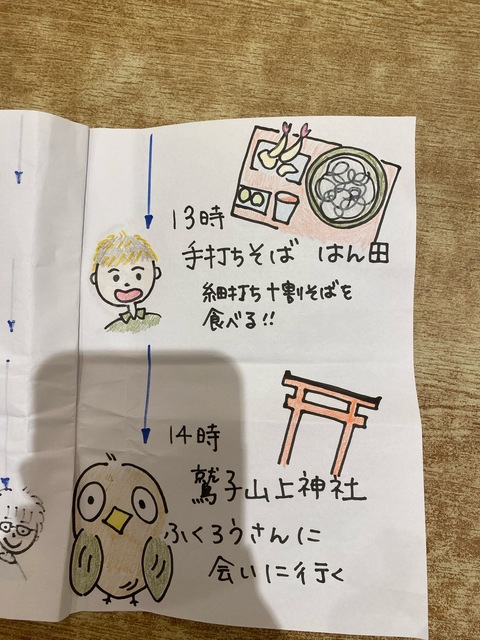 13時
手打ちそば はん田
細打ち十割そばを
食べる!!
14時
鷲子山上神社
ふくろうさんに
会いに行く